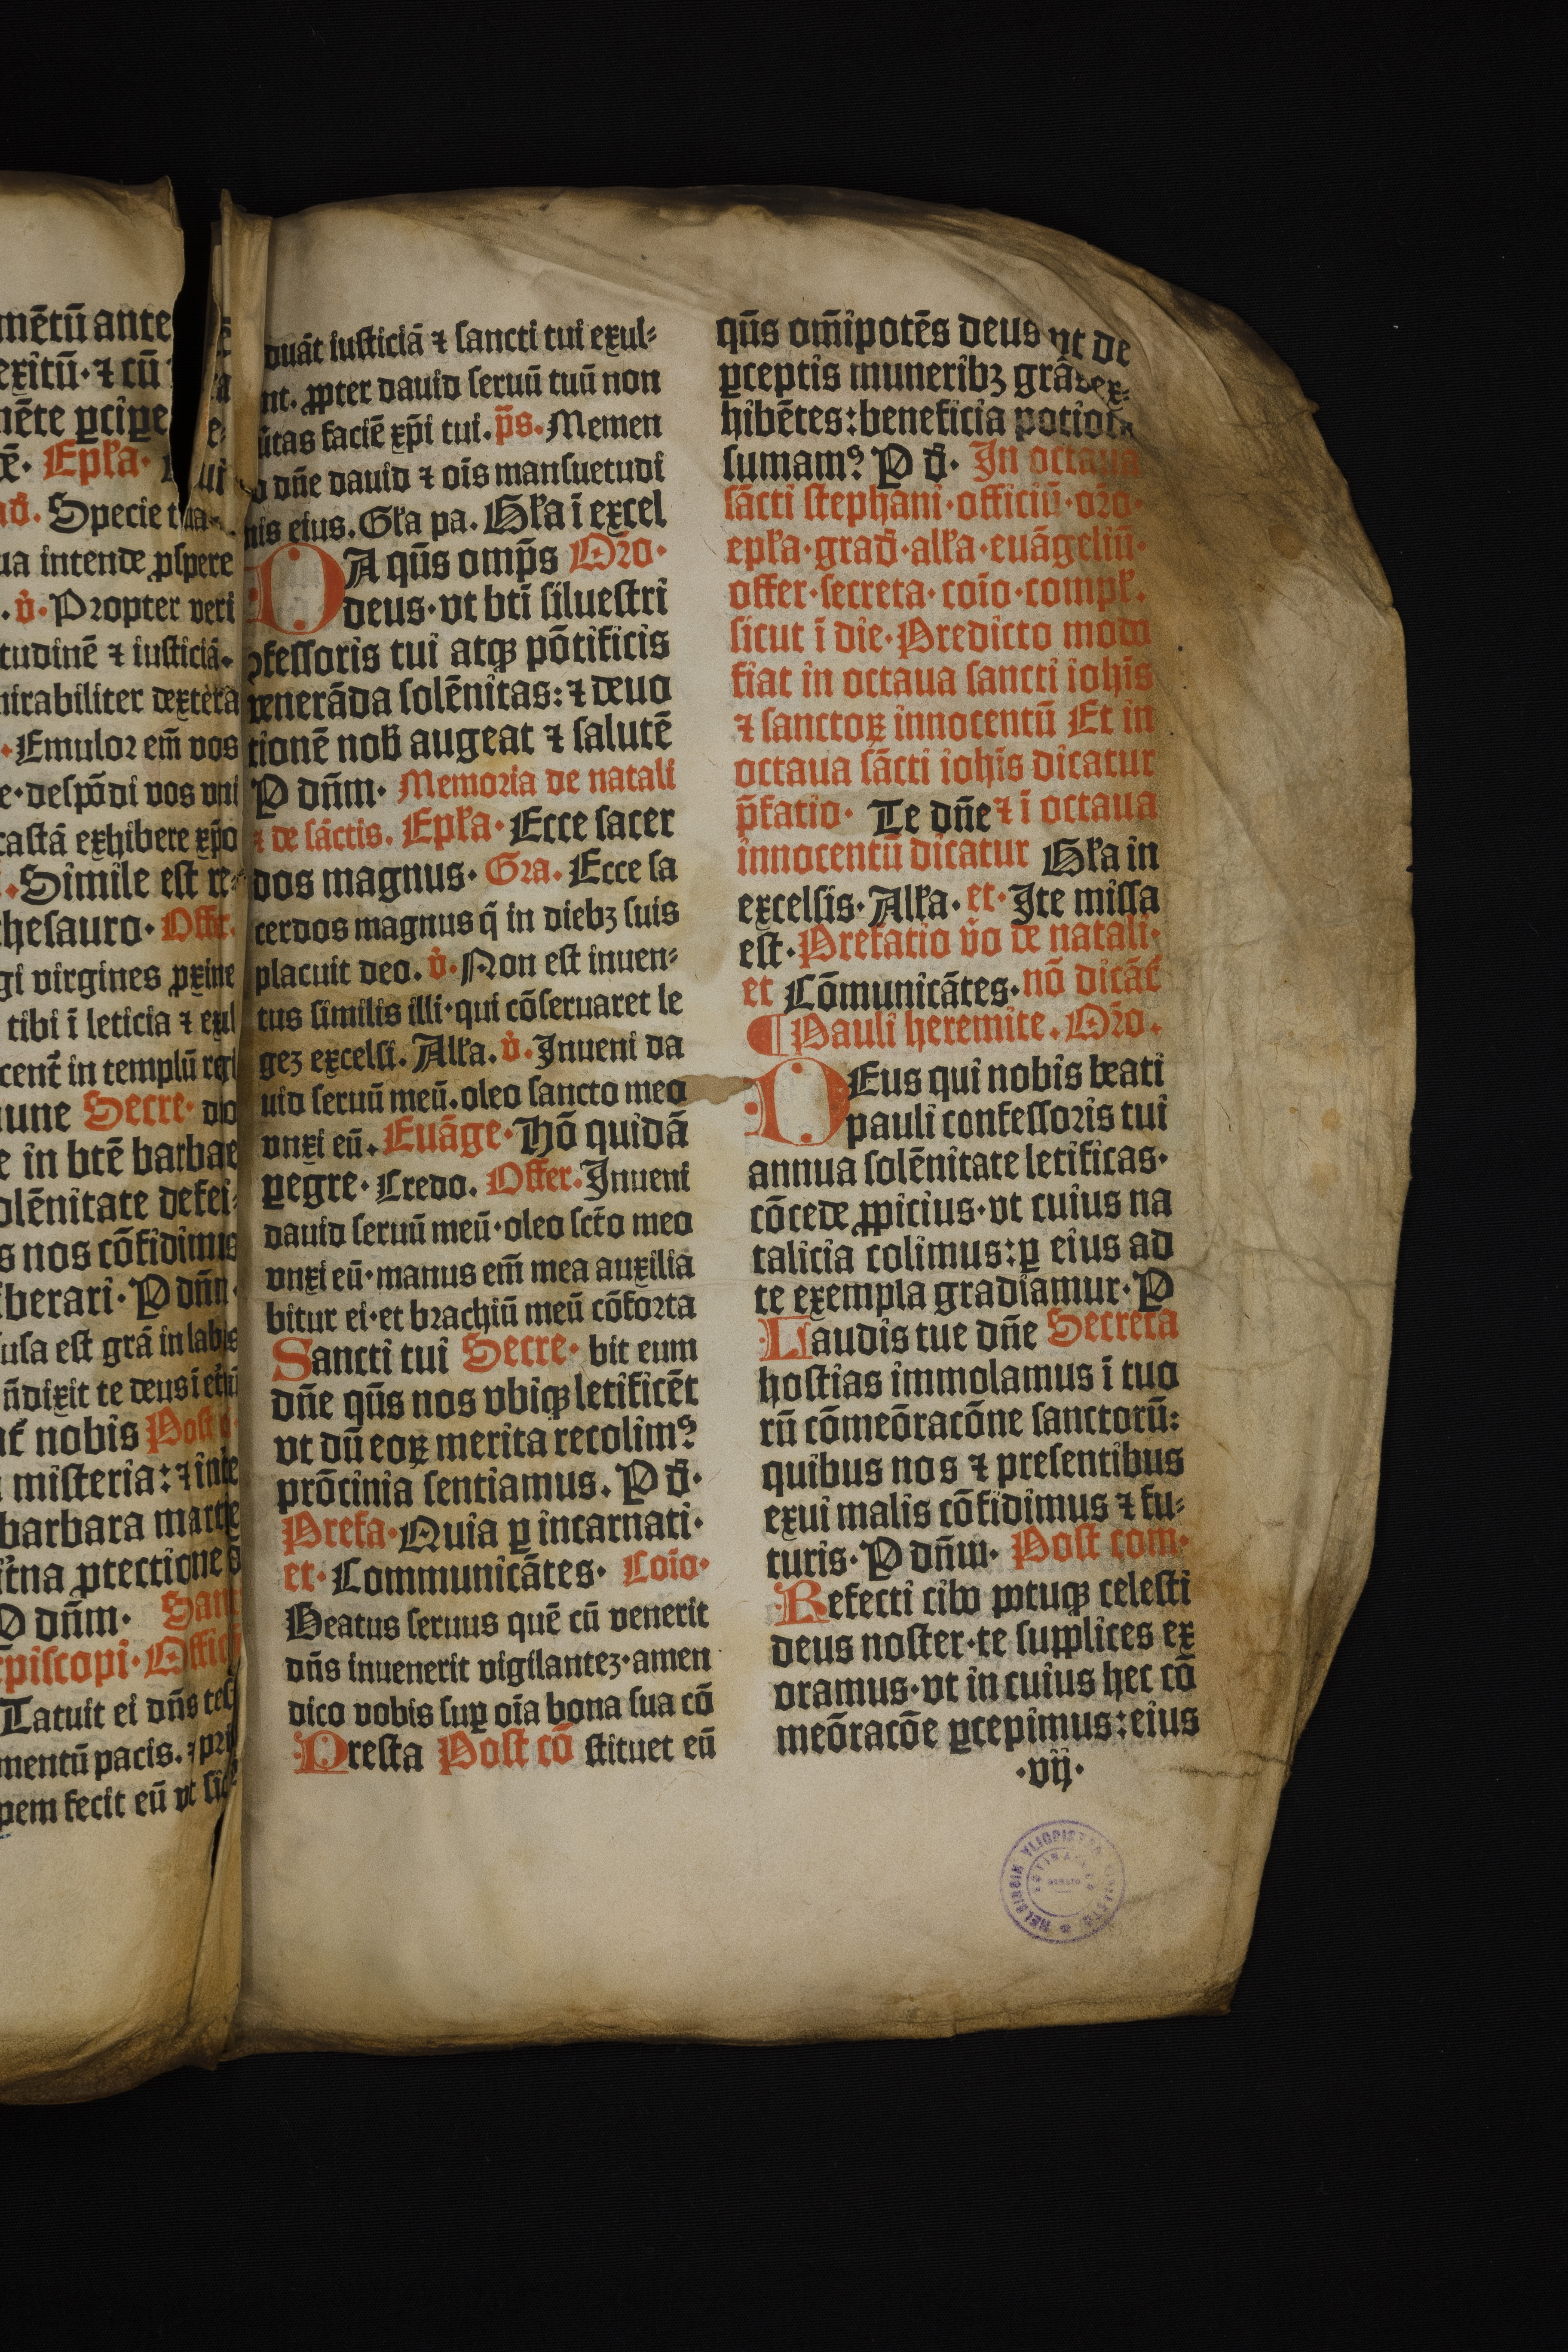 mētū ante
exitū · ⁊ cū
mēte ꝑcipe
Epl̄a ·
Specie tua
ua intende ꝓspere
. v̇ · Propter veri
tudinē ⁊ iusticiā ·
mirabiliter dextera
· Emulor em̄ vos
e · despōdi vos vni
castā exhibere xp̄o
. Simile est re⸗
thesauro · Offer.
gi virgines ꝓxime
tibi ī leticia ⁊ exul
cent̄ in templū regi
mune Secre · do
e in btē barbae
olēnitate defei⸗
s nos cōfidimus
iberari · P dn̄m ·
usa est grā in labijs
n̄dixit te deus ī
nobis Post
misteria : ⁊ inte
barbara martire
ꝓtectione
P dn̄m · Sanc
Episcopi · Offici
Tatuit ei dn̄s test
mentū pacis. ⁊ prī
pem fecit eū vt sit
duāt iusticiā ⁊ sancti tui exul⸗
nt. ꝓpter dauid seruū tuū non
ūtas faciē xp̄i tui. p̄s. Memen
o dn̄e dauid ⁊ oīs mansuetudi
nis eius. Gl̄a pa. Gl̄a ī excel
DA qūs omp̄s Or̄o ·
deus · vt btī siluestri
ꝯfessoris tui atqꝫ pōtificis
venerāda solēnitas : ⁊ deuo
tionē nob̄ augeat ⁊ salutē
P dn̄m · Memoria de natali
⁊ de sāctis. Epl̄a · Ecce sacer
dos magnus · Gra. Ecce sa
cerdos magnus q̄ in diebꝫ suis
placuit deo. v̇. Non est inuen⸗
tus similis illi · qui cōseruaret le
gez excelsi. All̄a. v̇. Inueni da
uid seruū meū. oleo sancto meo
vnxi eū. Euāge · Hō quidā
ꝑegre · Credo. Offer. Inueni
dauid seruū meū · oleo sct̄o meo
vnxi eū · manus em̄ mea auxilia
bitur ei · et brachiū meū cōforta
Sancti tui Secre · bit eum
dn̄e qūs nos vbiqꝫ letificēt
vt dū eoꝝ merita recolimꝰ :
prōcinia sentiamus. P d̄ ·
Prefa · Quia ꝑ incarnati ·
et · Communicātes · Coīo ·
Beatus seruus quē cū venerit
dn̄s inuenerit vigilantez · amen
dico vobis suꝑ oīa bona sua cō
Presta Post cō stituet eū
qūs om̄ipotēs deus vt de
ꝑceptis muneribꝫ grās ex⸗
hibētes : beneficia potiora
sumamꝰ : P d̄ · In octaua
sācti stephani · officiū · or̄o ·
epl̄a · grad̄ · all̄a · euāgeliū ·
offer · secreta · coīo · compl̄.
sicut ī die · Predicto modo
fiat in octaua sancti ioh̄is
⁊ sanctoꝝ innocentū Et in
octaua sācti ioh̄is dicatur
p̄fatio · Te dn̄e ⁊ ī octaua
innocentū dicatur Gl̄a in
excelsis · All̄a · et · Ite missa
est · Prefatio v̄o de natali ·
et Cōmunicātes · nō dicāt̄
¶ Pauli heremite. Or̄o.
DEus qui nobis beati
pauli confessoris tui
annua solēnitate letificas ·
cōcede ꝓpicius · vt cuius na
talicia colimus : ꝑ eius ad
te exempla gradiamur · P
Laudis tue dn̄e Secreta
hostias immolamus ī tuo
rū cōmeōracōne sanctorū :
quibus nos ⁊ presentibus
exui malis cōfidimus ⁊ fu⸗
turis · P dn̄m · Post com ·
Refecti cibo potuqꝫ celesti
deus noster · te supplices ex
oramus · vt in cuius hec cō
meōracōe ꝑcepimus : eius
· vij ·